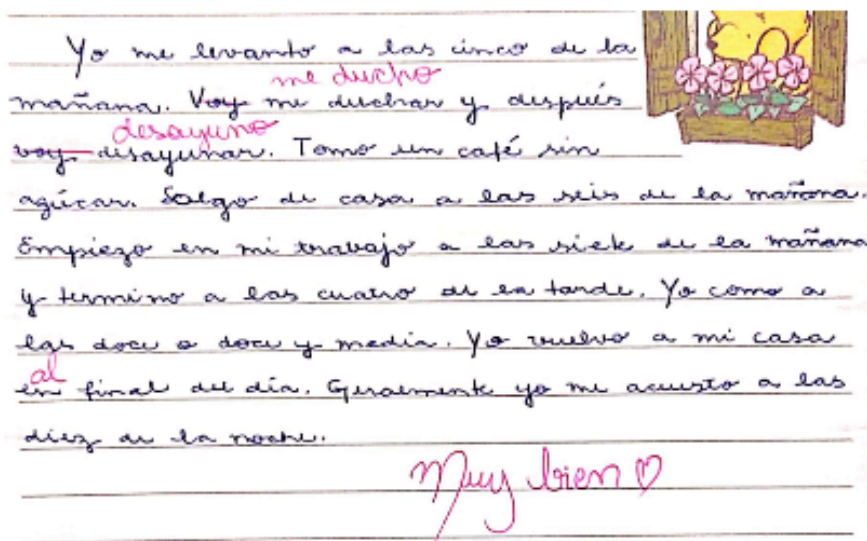 Yo me levanto a las cinco de la
me ducho
mañana. Voy me duchar y después
desayuno
voy desayunar. Tomo un café sin
azúcar. Salgo de casa a las seis de la mañana.
Empiezo en mi trabajo a las siete de la mañana
y termino a las cuatro de la tarde. Yo como a
las doce o doce y media. Yo vuelvo a mi casa
al
en final del día. Geralmente yo me acuesto a las
diez de la noche.
Muy bien ♡